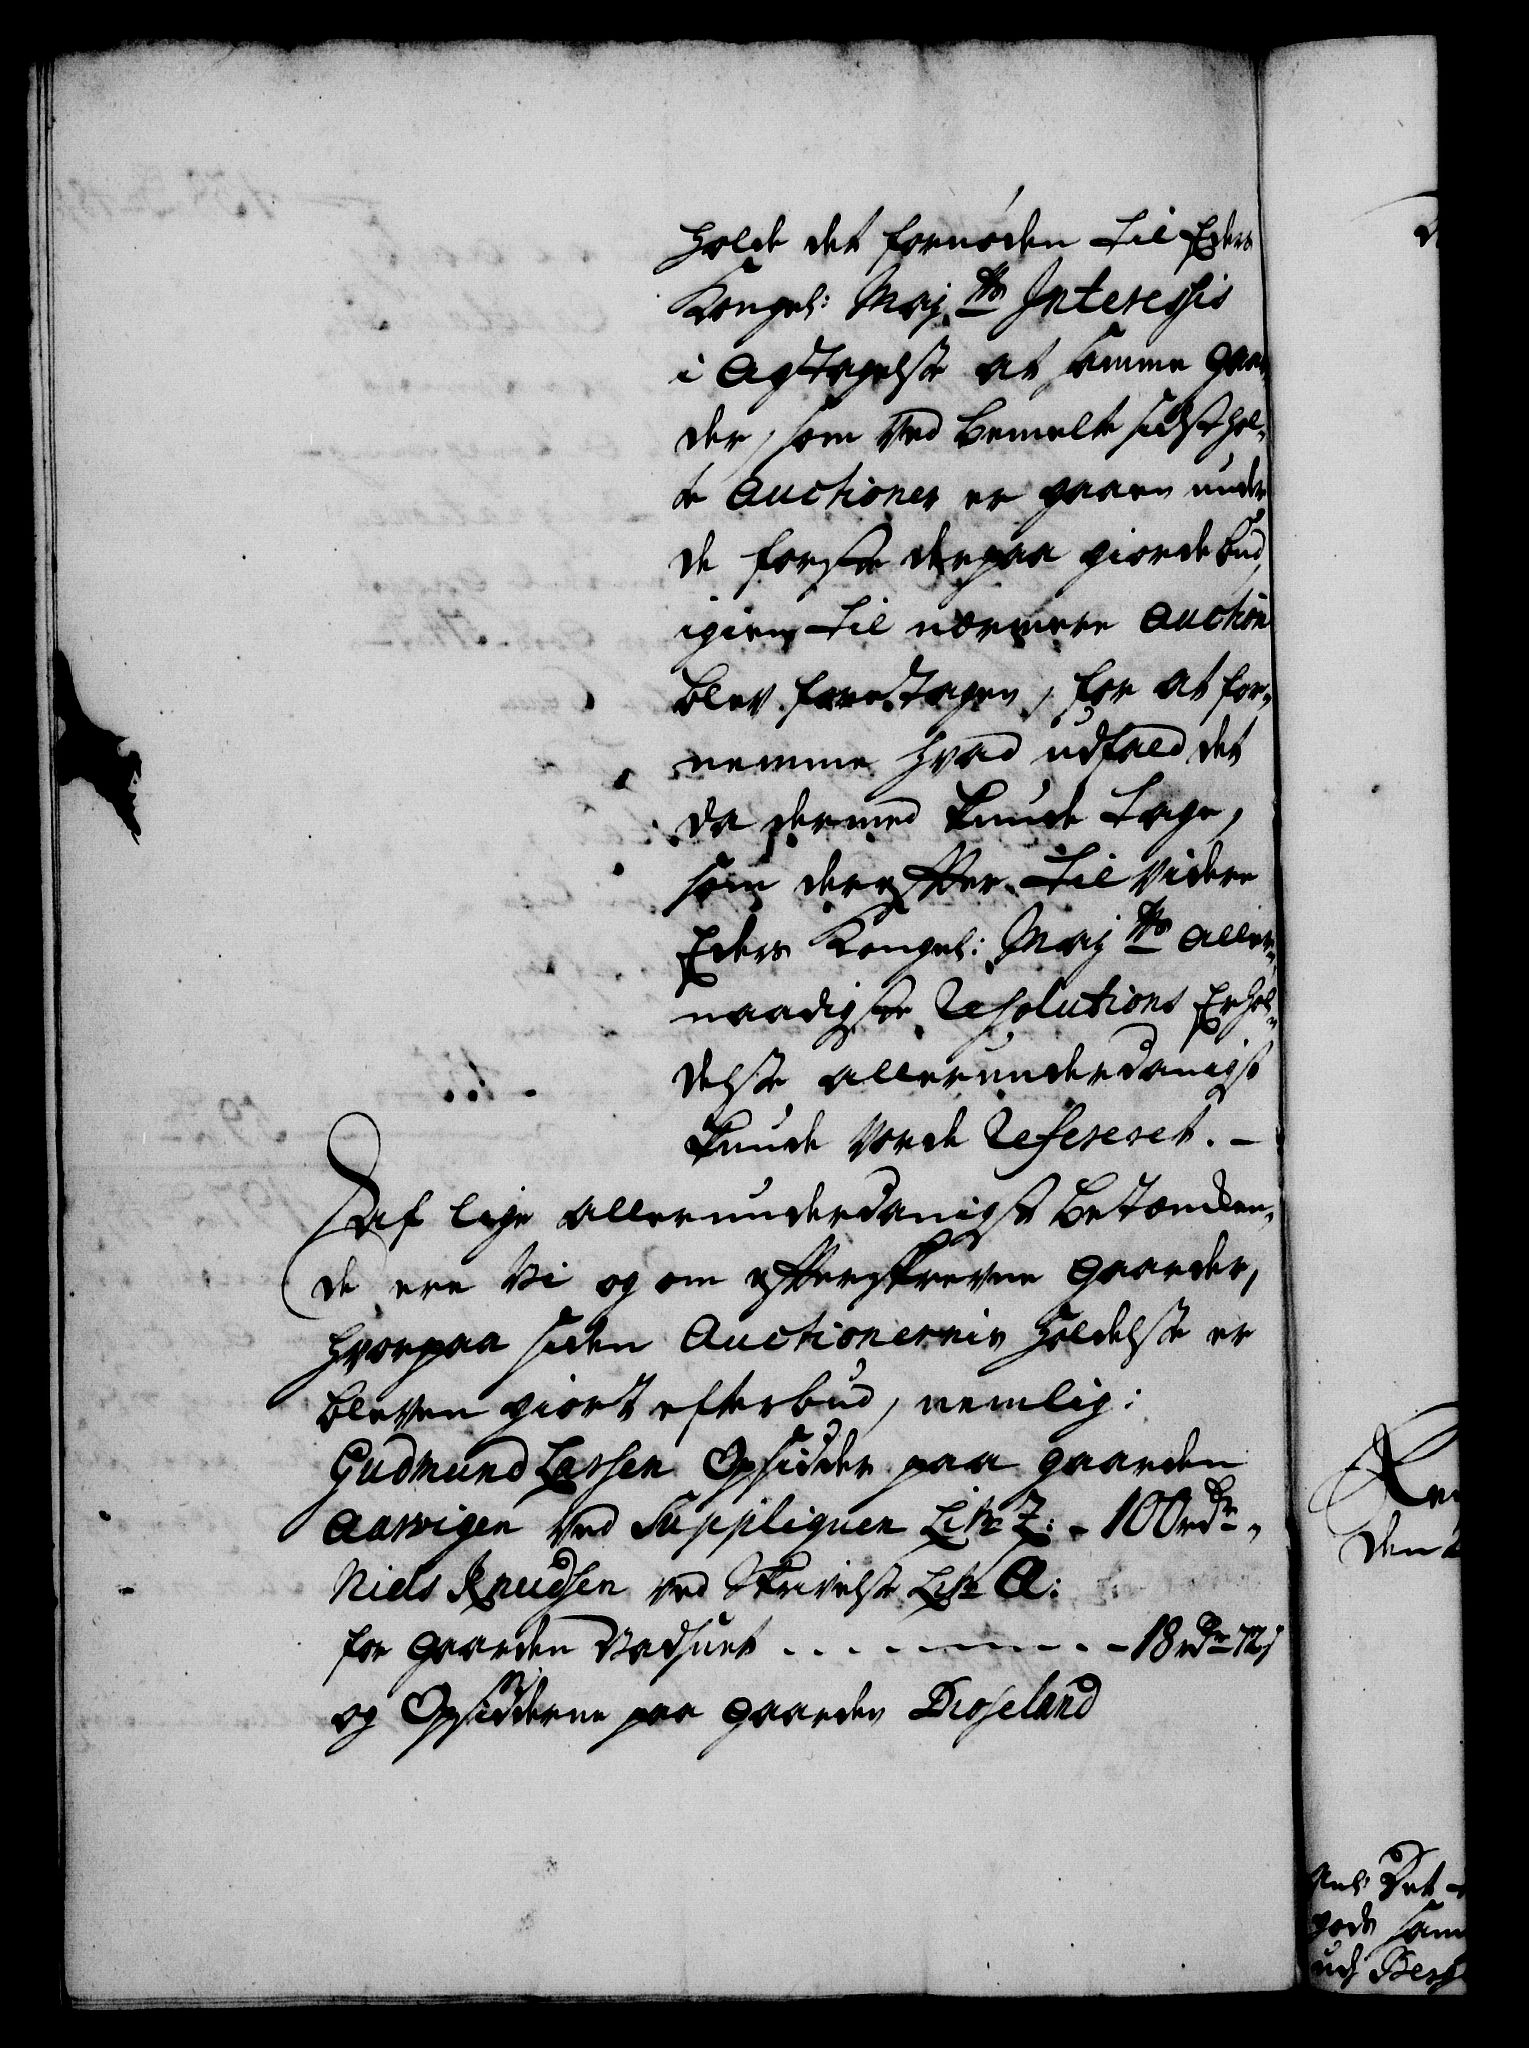 holde det fornøden til Eders
Kongel: May.tts Interessis
i Agtagelse at samme Gaar
der, som ved bemelte sidst hol-
te Auctioner er gaaen under
de første derpaa giorde bud,
igien til nærmere Auction
blev foretagen, for at for-
nemme hvad udfald det
da dermed kunde tage,
som derefter til videre
Eders Kongel: May.tts aller-
naadigste Resolutions Erhol-
delse allerunderdanigst
kunde vorde Refereret. -
Af lige allerunderdanigst betænken-
de ere Vi og om efterskrevne Gaarder,
hvorpaa siden Auctionernis holdelse er
bleven giort efterbud, nemlig:
Gudmund Larsen Opsidder paa gaarden
Aaevigen ved Suppliquen Litr Z: - 100 rdr -
Niels Knudsen ved Skrivelse Litr A:
for Gaarden Vadhuet - - - - - - 18 rdr 72 s
og Opsidderne paa Gaarden Dioseland
den
Anl Det
gods sam
ud Berg